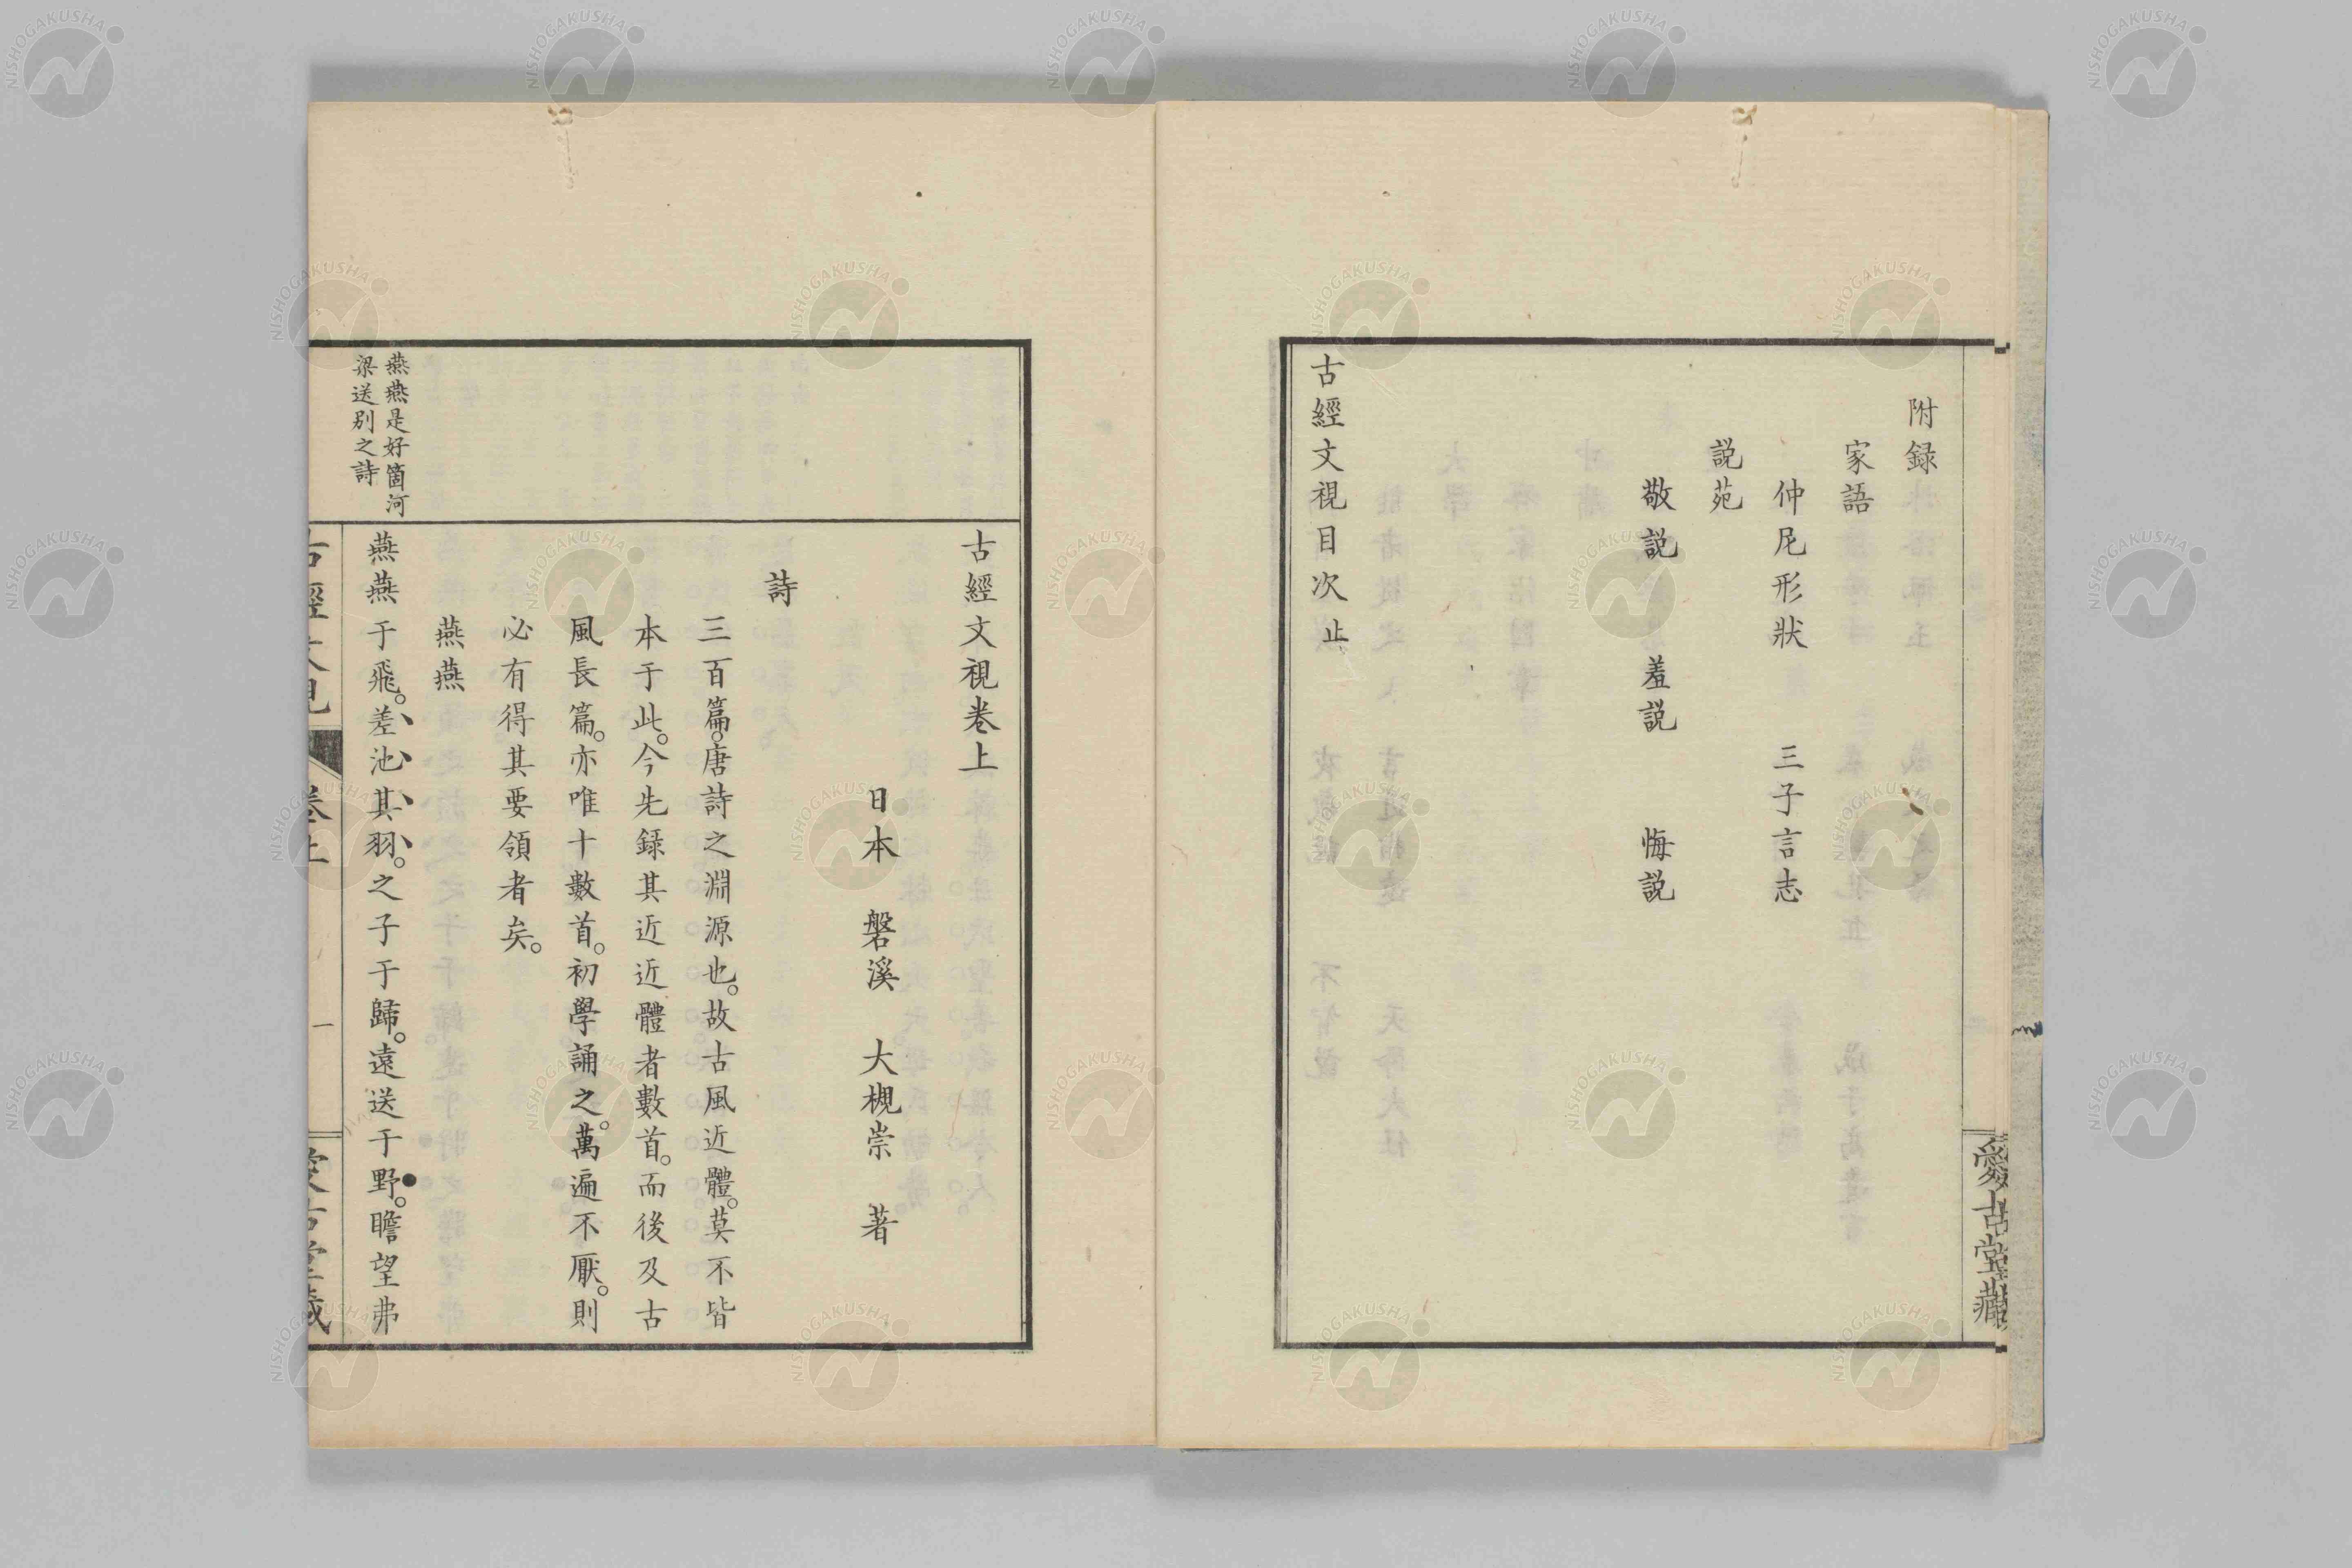 附録
家語
仲尼形狀　三子言志
説苑
敬説　羞説　悔説
古經文視目次止
愛古堂藏
古經文視卷上
日本　磐溪　大槻崇　著
詩
三百篇。唐詩之淵源也。故古風近體。莫不皆
本于此。今先録其近近體者數首。而後及古
風長篇。亦唯十數首。初學誦之。萬遍不厭。則
必有得其要領者矣。
燕燕
燕燕是好箇河
梁送別之詩
燕燕于飛。差池其羽。之子于歸。遠送于野。瞻望弗
古經文視　卷上　一　愛古堂藏
NISHOGAKUSHA